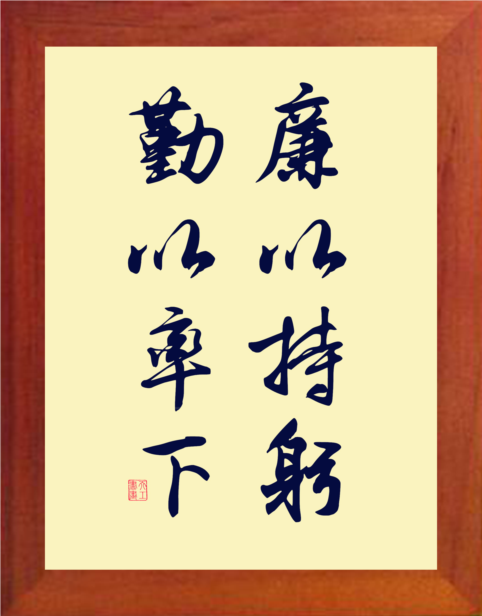 廉以持躬
勤以率下